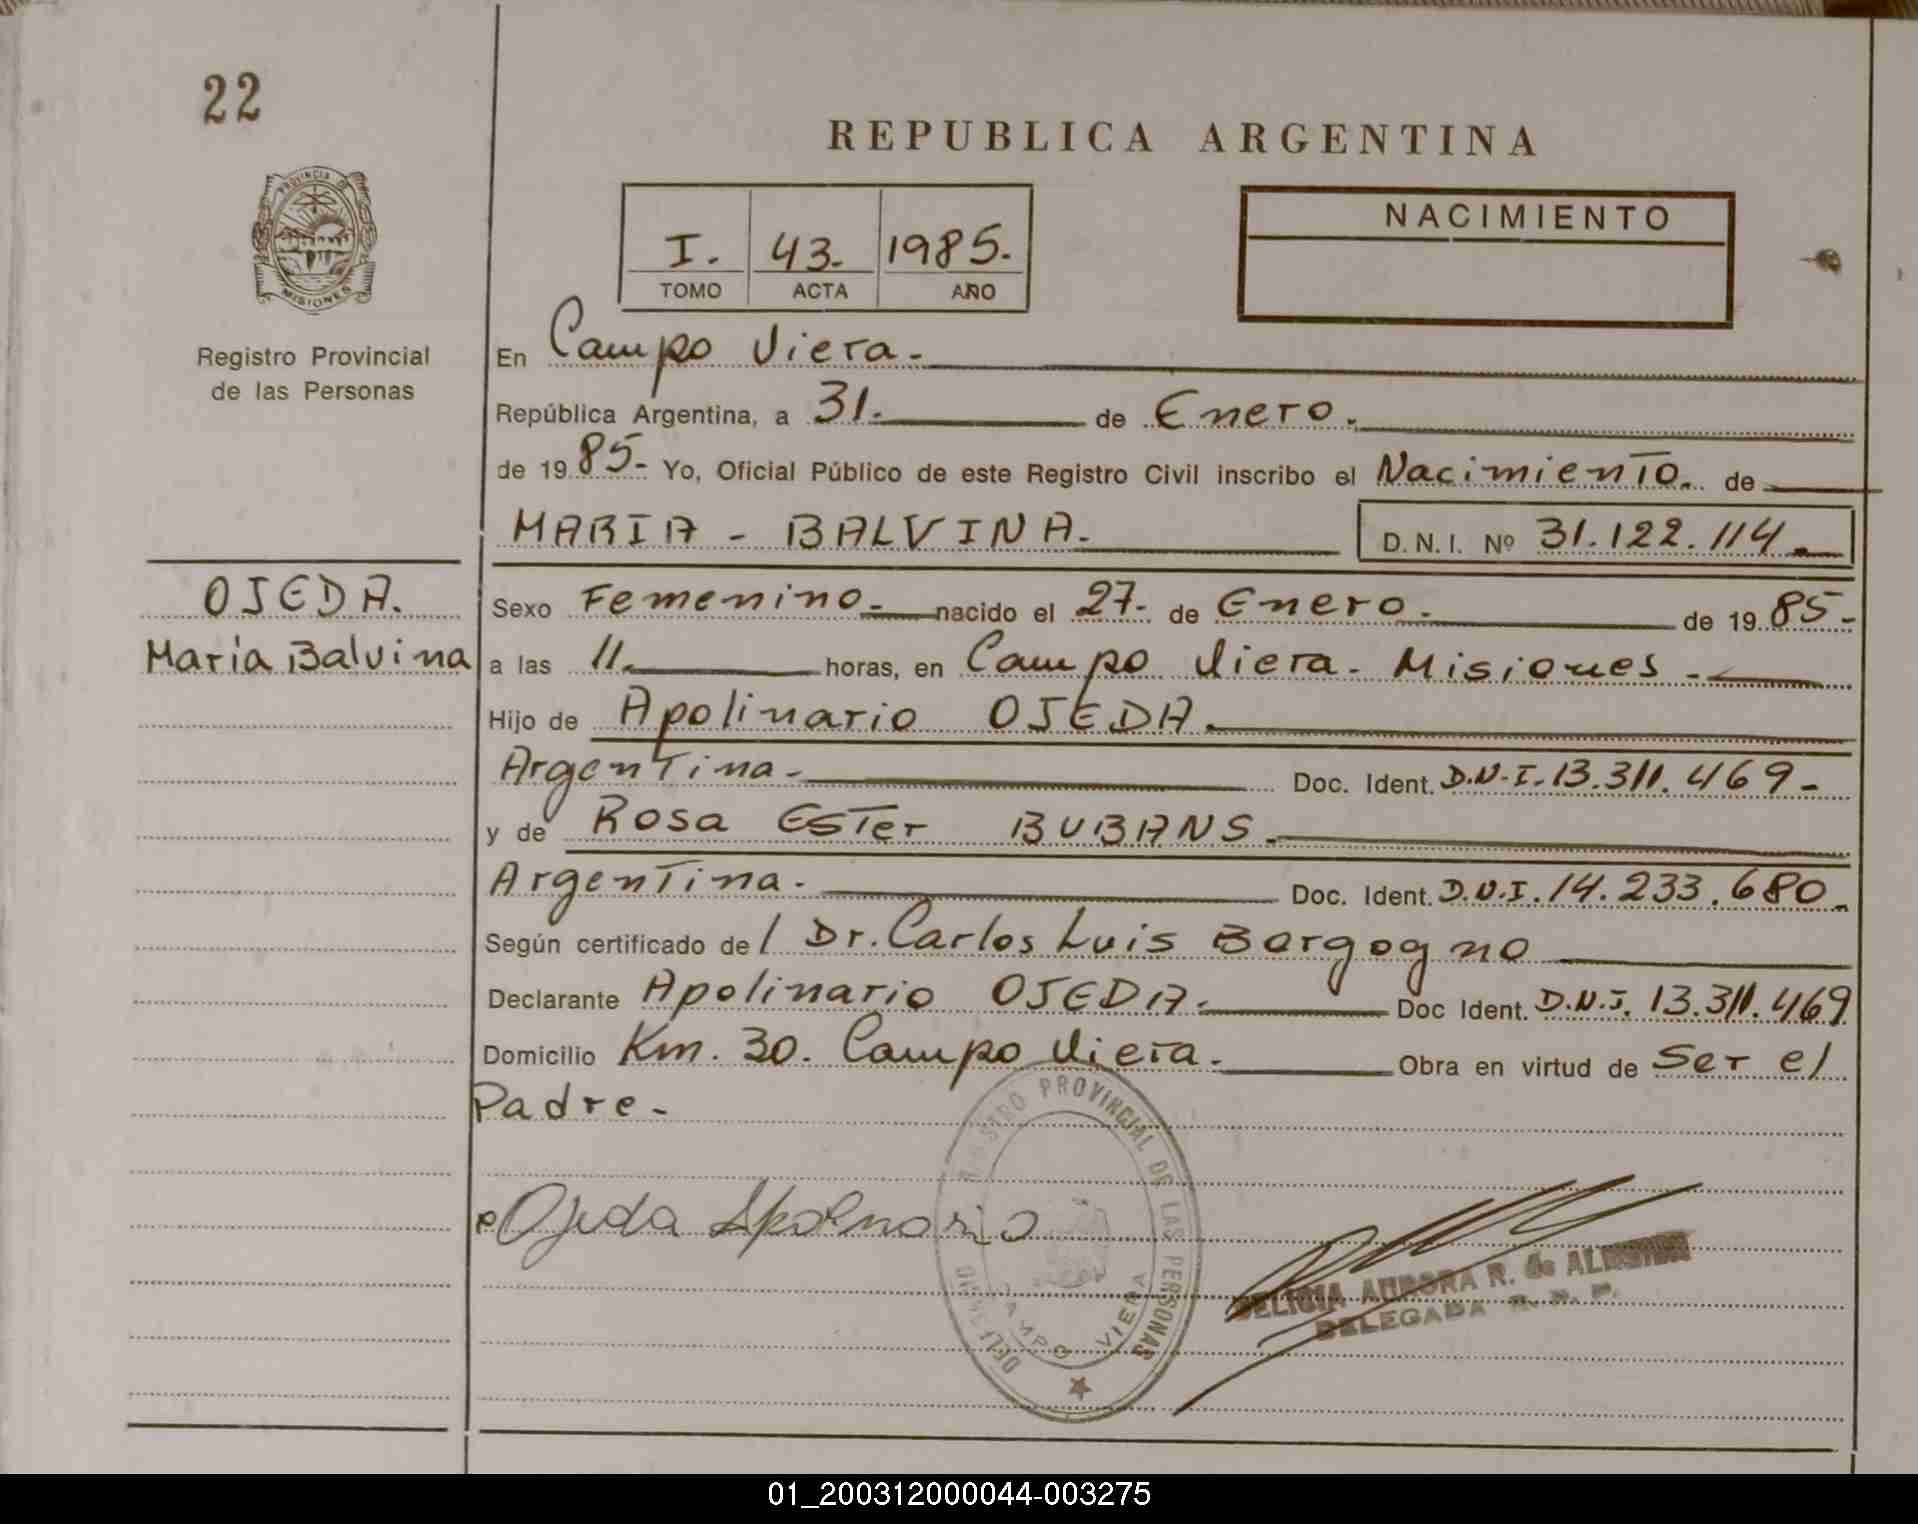 22
REPUBLICA ARGENTINA
PROVINCIA DE
MISIONES
Registro Provincial
de las Personas
I. 43. 1985.
TOMO ACTA AÑO
NACIMIENTO
En Campo Viera.
República Argentina, a 31. de Enero.
de 19 85- Yo, Oficial Público de este Registro Civil inscribo el Nacimiento. de
MARIA - BALVINA. D.N.I. Nº 31.122.114
OJEDA.
María Balvina
Sexo Femenino. nacido el 27. de Enero. de 19 85-
a las 11. horas, en Campo Viera. Misiones -
Hijo de Apolinario OJEDA.
Argentina. Doc. Ident. D.N.I. 13.311.469-
y de Rosa Ester BUBANS.
Argentina. Doc. Ident. D.N.I. 14.233.680.
Según certificado de / Dr. Carlos Luis Borgogno
Declarante Apolinario OJEDA. Doc Ident. D.N.I. 13.311.469
Domicilio Km. 30. Campo Viera. Obra en virtud de Ser el
Padre-
REGISTRO PROVINCIAL DE LAS PERSONAS
CAMPO VIERA
Ojeda Apolnario
DELICIA AURORA R. de ALMEIDA
DELEGADA R. P. P.
01_200312000044-003275